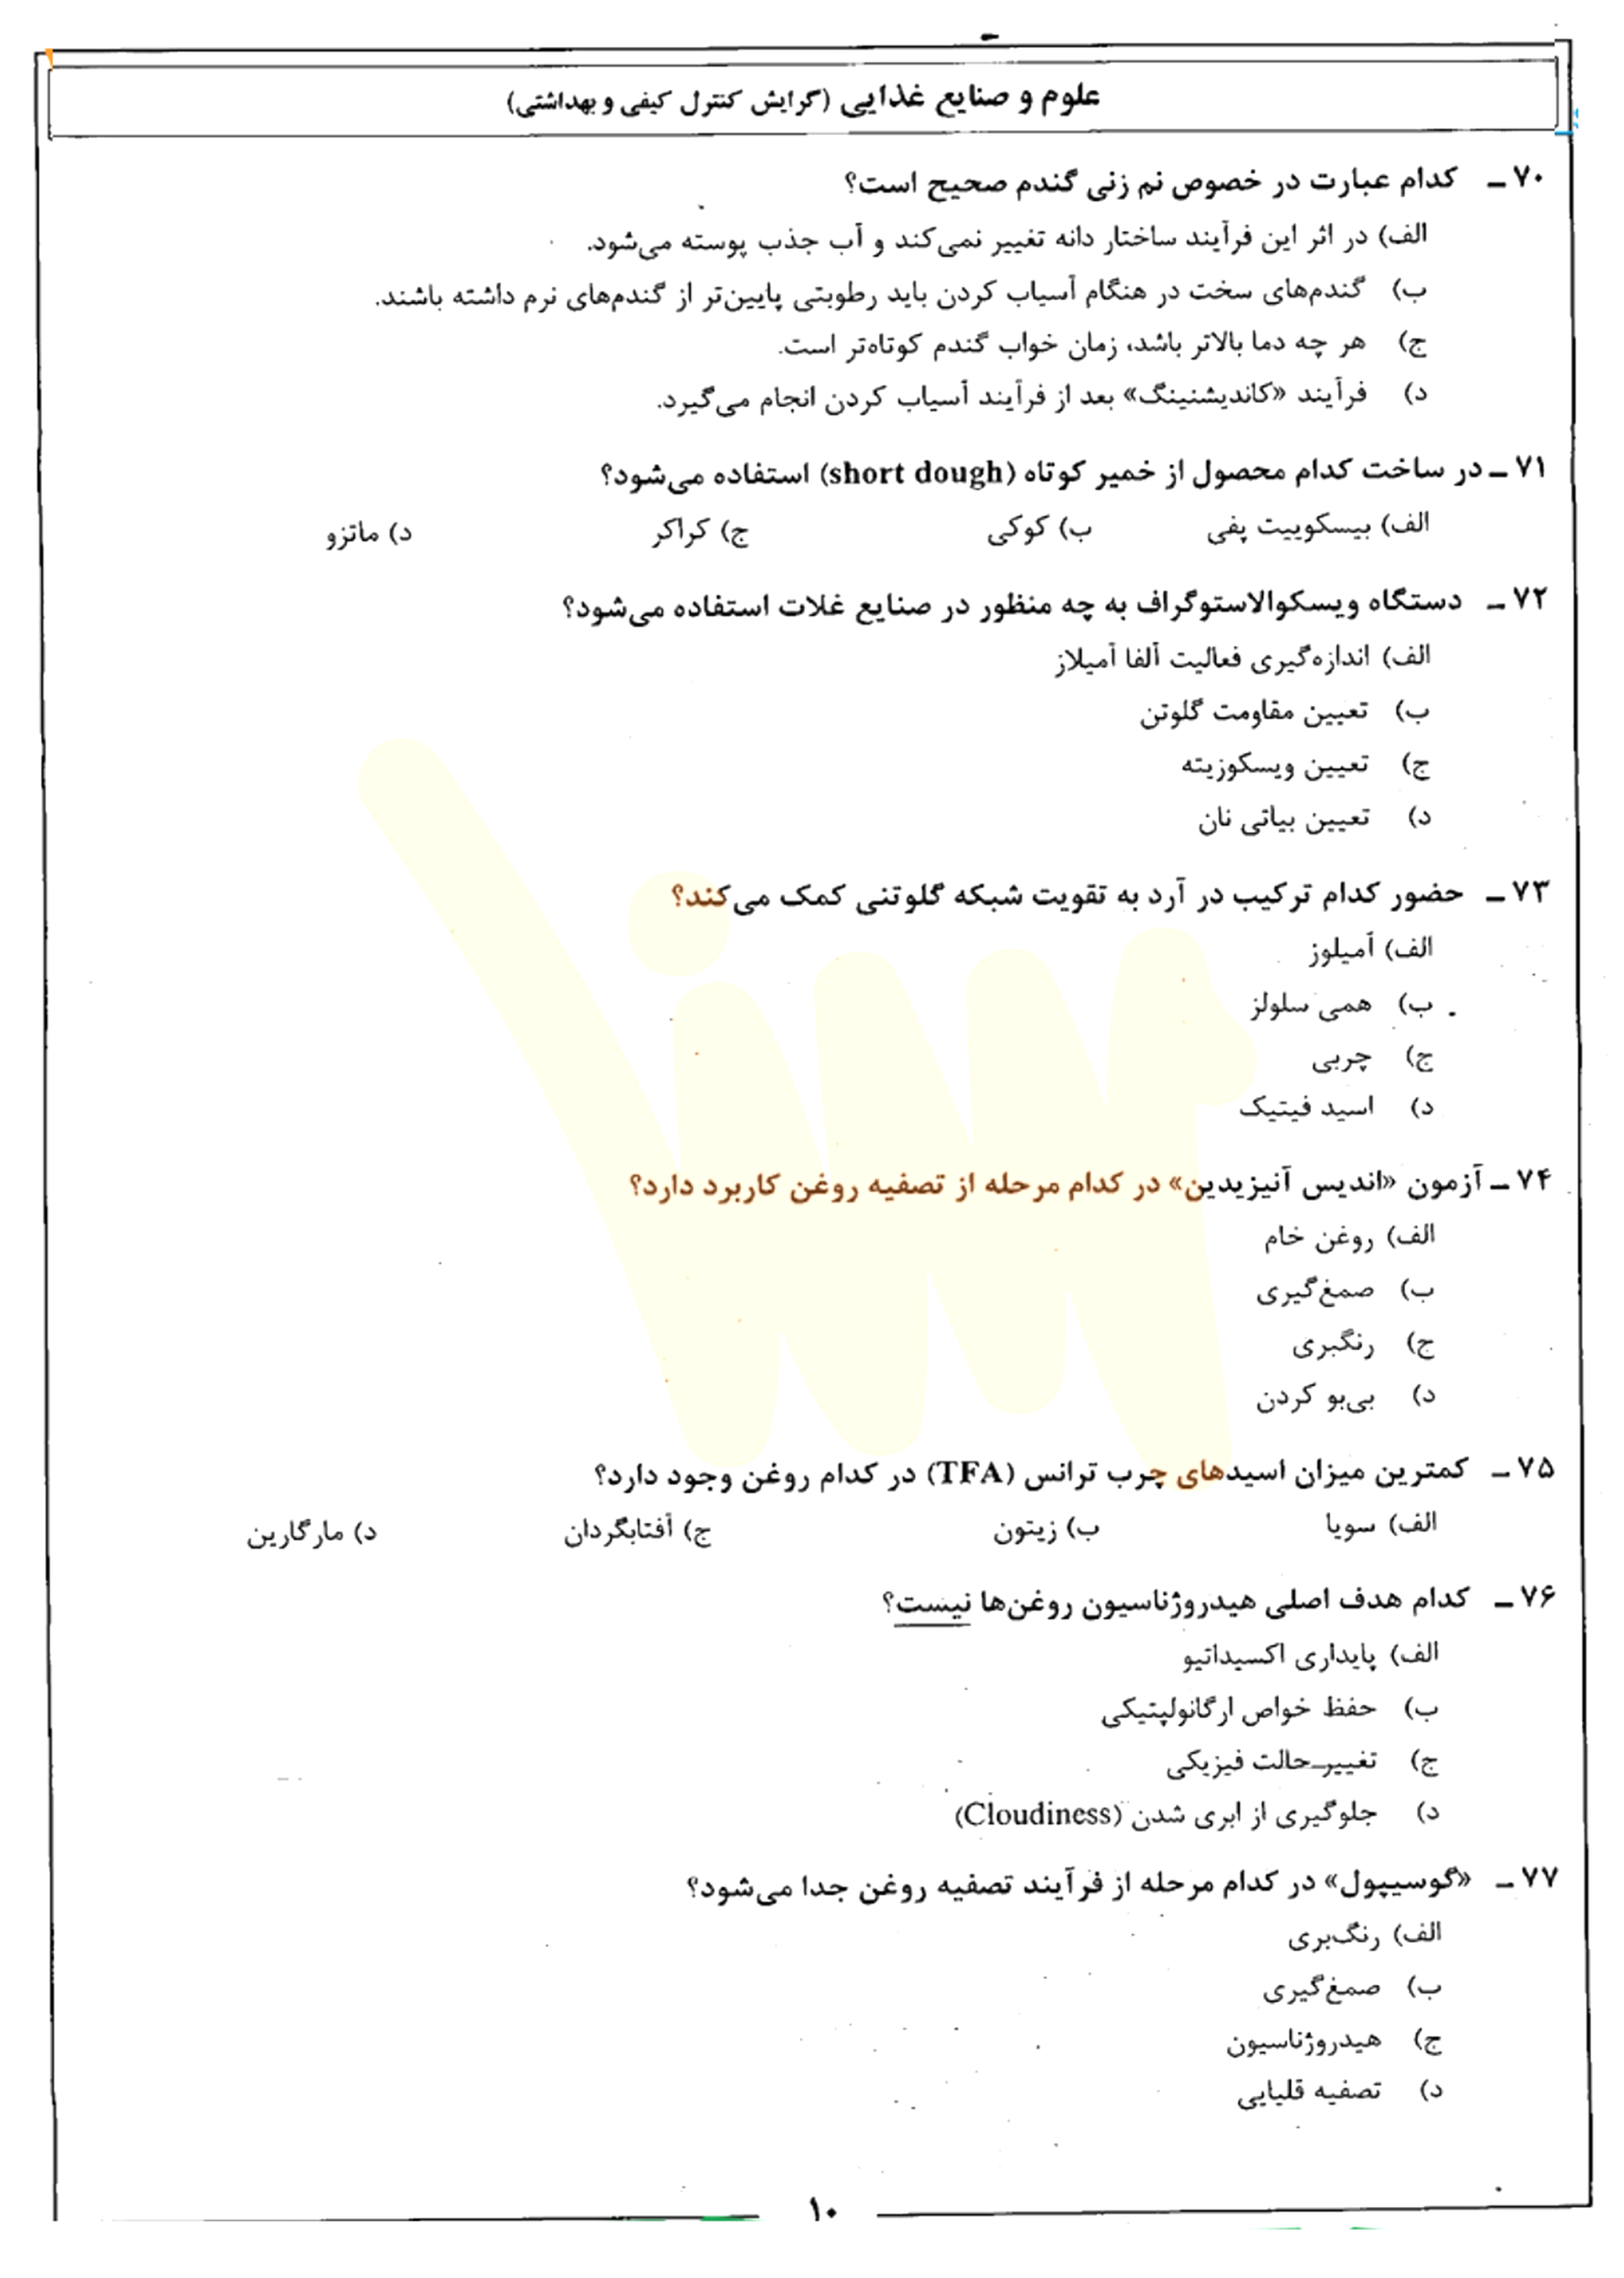 علوم و صنایع غذایی (گرایش کنترل کیفی و بهداشتی)
۷۰ ـ کدام عبارت در خصوص نم زنی گندم صحیح است؟
الف) در اثر این فرآیند ساختار دانه تغییر نمی‌کند و آب جذب پوسته می‌شود.
ب) گندم‌های سخت در هنگام آسیاب کردن باید رطوبتی پایین‌تر از گندم‌های نرم داشته باشند.
ج) هر چه دما بالاتر باشد، زمان خواب گندم کوتاه‌تر است.
د) فرآیند «کاندیشنینگ» بعد از فرآیند آسیاب کردن انجام می‌گیرد.
۷۱ ـ در ساخت کدام محصول از خمیر کوتاه (short dough) استفاده می‌شود؟
الف) بیسکوییت پفی ب) کوکی ج) کراکر د) ماتزو
۷۲ ـ دستگاه ویسکوالاستوگراف به چه منظور در صنایع غلات استفاده می‌شود؟
الف) اندازه‌گیری فعالیت آلفا آمیلاز
ب) تعیین مقاومت گلوتن
ج) تعیین ویسکوزیته
د) تعیین بیاتی نان
۷۳ ـ حضور کدام ترکیب در آرد به تقویت شبکه گلوتنی کمک می‌کند؟
الف) آمیلوز
ب) همی سلولز
ج) چربی
د) اسید فیتیک
۷۴ ـ آزمون «اندیس آنیزیدین» در کدام مرحله از تصفیه روغن کاربرد دارد؟
الف) روغن خام
ب) صمغ‌گیری
ج) رنگبری
د) بی‌بو کردن
۷۵ ـ کمترین میزان اسیدهای چرب ترانس (TFA) در کدام روغن وجود دارد؟
الف) سویا ب) زیتون ج) آفتابگردان د) مارگارین
۷۶ ـ کدام هدف اصلی هیدروژناسیون روغن‌ها نیست؟
الف) پایداری اکسیداتیو
ب) حفظ خواص ارگانولپتیکی
ج) تغییر حالت فیزیکی
د) جلوگیری از ابری شدن (Cloudiness)
۷۷ ـ «گوسیپول» در کدام مرحله از فرآیند تصفیه روغن جدا می‌شود؟
الف) رنگ‌بری
ب) صمغ‌گیری
ج) هیدروژناسیون
د) تصفیه قلیایی
۱۰